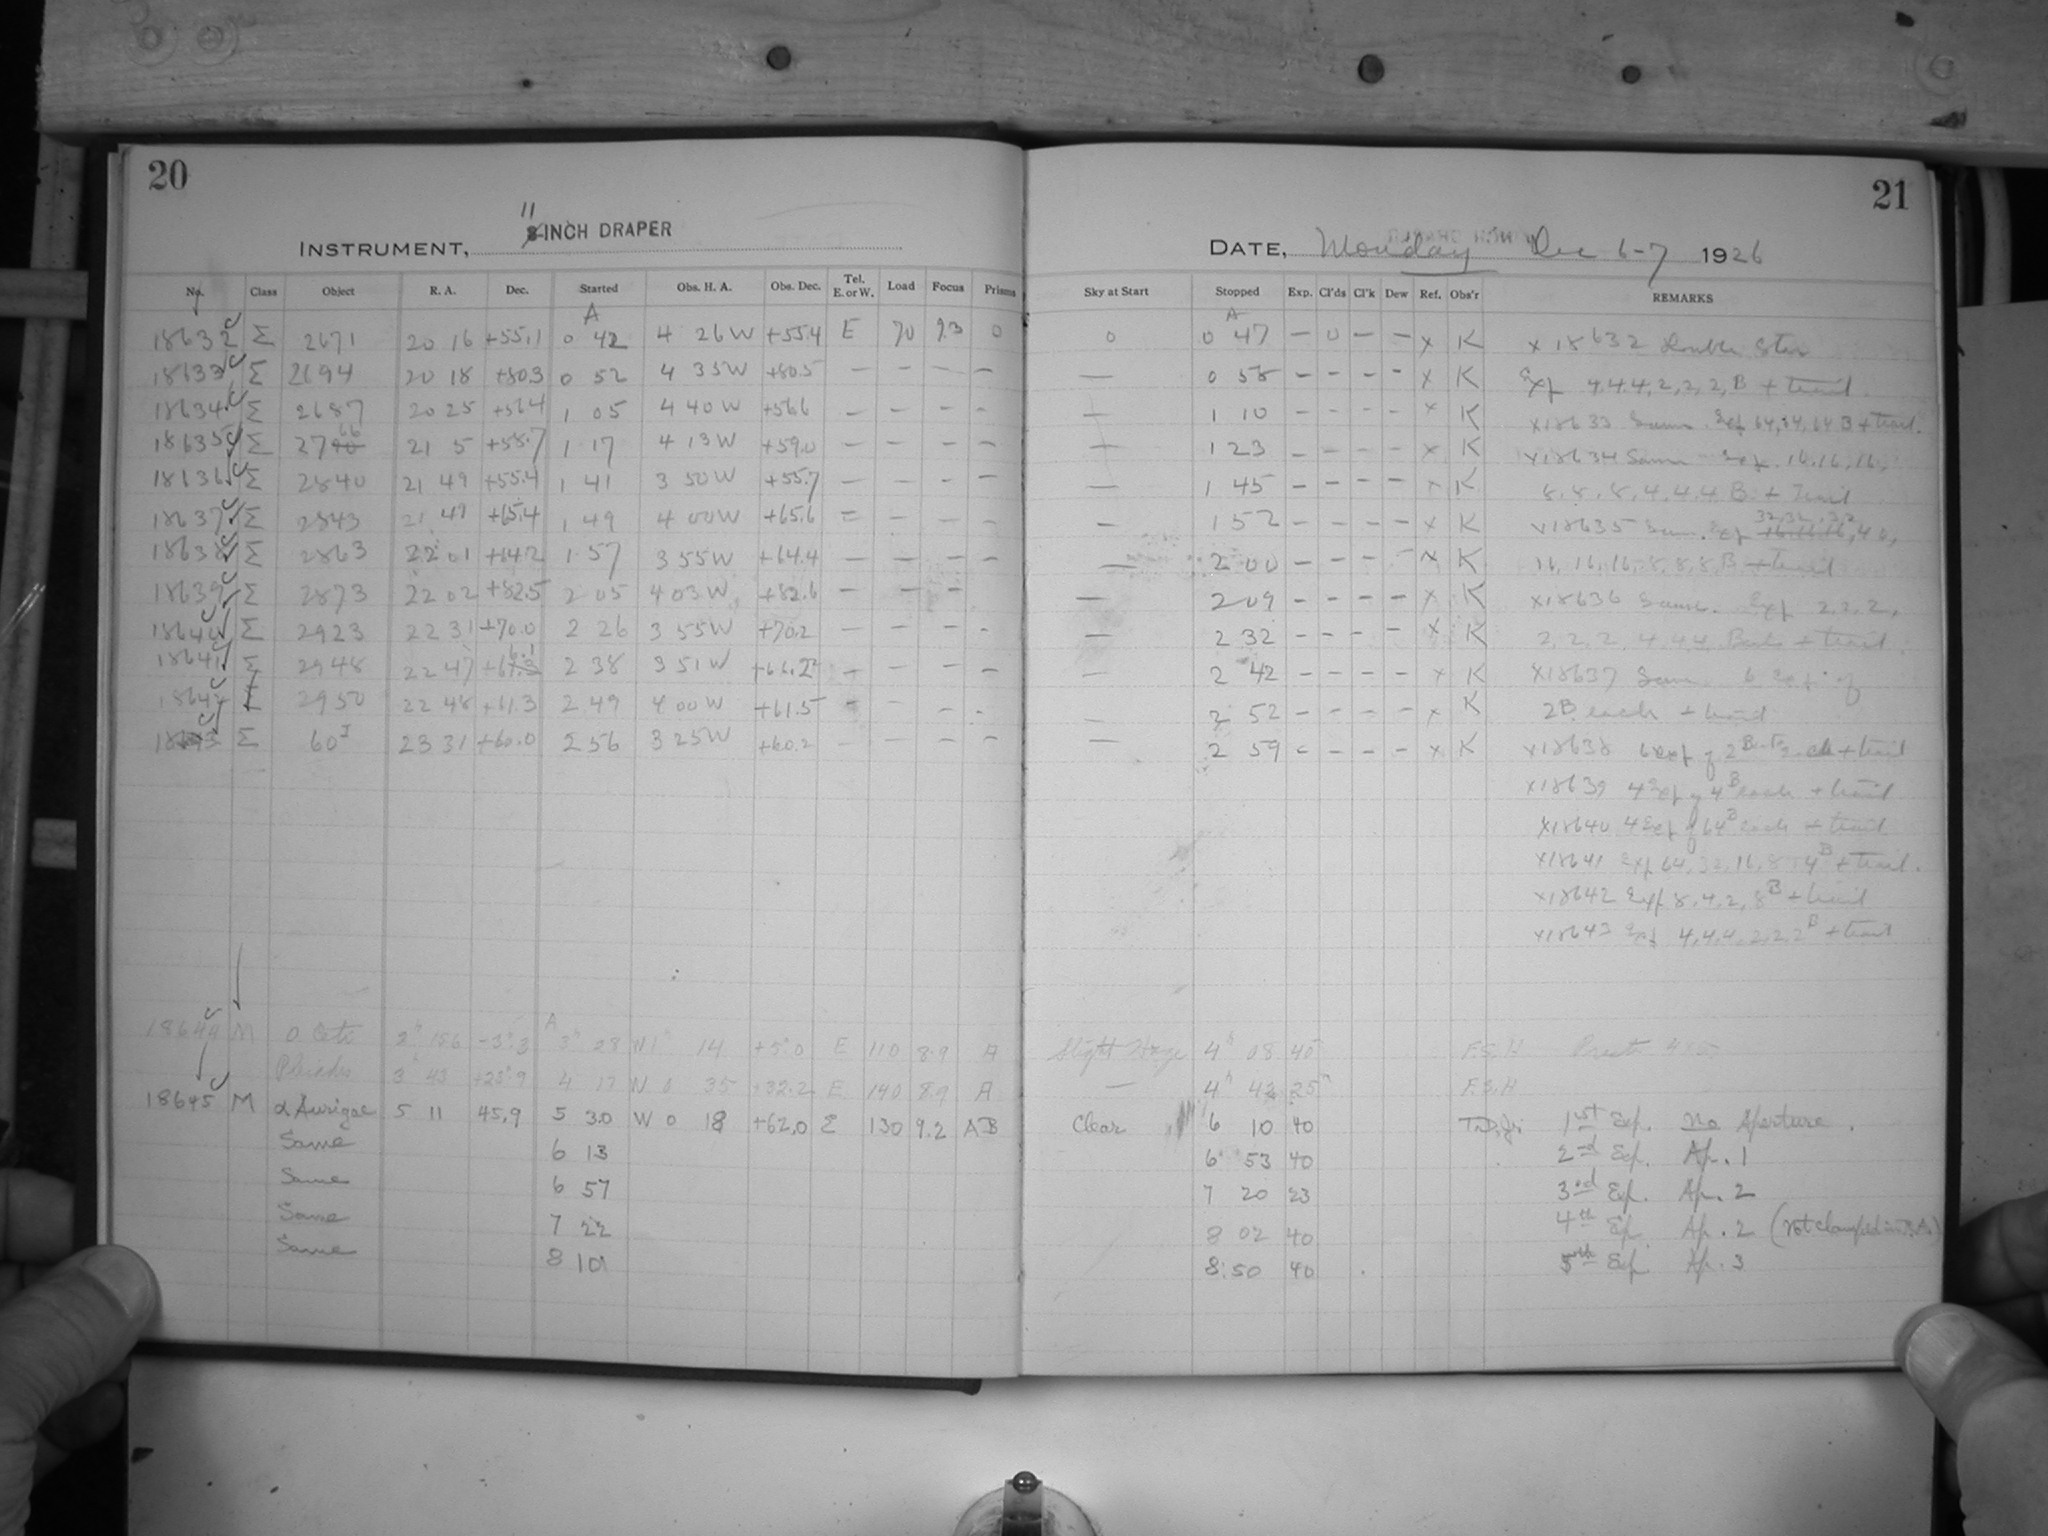 20
11
8 INCH DRAPER
INSTRUMENT,
No. Class Object R. A. Dec. Started Obs. H. A. Obs. Dec. Tel. E. or W. Load Focus Prisms
A
18632 Σ 2671 20 16 +55.1 0 42 4 26 W +55.4 E 70 9.3 0
18633 Σ 2694 20 18 +80.3 0 52 4 35 W +80.5 — — — —
18634 Σ 2687 20 25 +56.4 1 05 4 40 W +56.6 — — — —
18635 Σ 2740 66 21 5 +58.7 1 17 4 13 W +59.0 — — — —
18636 Σ 2840 21 49 +55.4 1 41 3 50 W +55.7 — — — —
18637 Σ 2843 21 49 +65.4 1 49 4 00 W +65.6 — — — —
18638 Σ 2863 22 01 +64.2 1 57 3 55 W +64.4 — — — —
18639 Σ 2873 22 02 +82.5 2 05 4 03 W +82.6 — — —
18640 Σ 2923 22 31 +70.0 2 26 3 55 W +70.2 — — — —
18641 Σ 2948 22 47 2 38 3 51 W +66.2 — — — —
18642 Σ 2950 22 48 +61.3 2 49 4 00 W +61.5 — — — —
18643 Σ 60 I 23 31 +60.0 2 56 3 25 W +60.2 — — — —
A
18644 M o Ceti 2h 15.6 -3°.3 3h 28 W 1h 14 +5°.0 E 110 8.9 A
Pleiades 3h 43 +23°.9 4 17 W 0 35 +32.2 E 140 8.9 A
18645 M α Aurigae 5 11 45.9 5 30 W 0 18 +62.0 E 130 9.2 AB
Same 6 13
Same 6 57
Same 7 22
Same 8 10
21
DATE, Monday Dec 6-7 1926
Sky at Start Stopped Exp. Cl'ds Cl'k Dew Ref. Obs'r REMARKS
A
0 0 47 — 0 — — x K x 18632 Double Star
— 0 58 — — — — x K Exp 4,4,4,2,2,2,B + trail.
— 1 10 — — — — x K x18633 Same. Exp 64,64,64 B + trail.
— 1 23 — — — — x K x18634 Same Exp. 16,16,16,
— 1 45 — — — — x K 8,8,8,4,4,4 B + Trail
— 1 52 — — — — x K x18635 Same. Exp 16,16,16, 32,32,32
— 2 00 — — — — x K 16,16,16,8,8,8 B + trail
— 2 09 — — — — x K x18636 Same. Exp 2,2,2,
— 2 32 — — — — x K 2,2,2,4,4,4 Beats + trail.
— 2 42 — — — — x K x18637 Same 6 Exp. of
— 2 52 — — — — x K 2B each + trail
— 2 59 — — — — x K x18638 6 exp of 2 Beats each + trail
x18639 4 Exp of 4B each + trail
x18640 4 Exp of 64B each + trail
x18641 Exp 64,32,16,8,4B + trail.
x18642 Exp 8,4,2,8B + trail
x18643 Exp 4,4,4,2,2,2B + trail
Slight Haze 4h 08 40 F.S.H
— 4h 42 25 F.S.H
Clear 6 10 40 1st Exp. No Aperture.
6 53 40 2nd Exp. Ap. 1
7 20 23 3rd Exp. Ap. 2
8 02 40 4th Exp Ap. 2
8:50 40 5th Exp Ap. 3